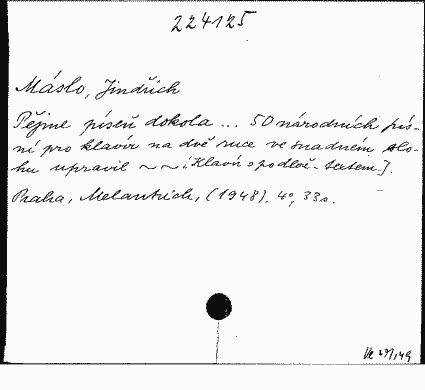 224125
Máslo, Jindřich
Pějme píseň dokola ... 50 národních pís-
ní pro klavír na dvě ruce ve snadném slo-
hu upravil ~ ~ [Klavír s podlož. textem.]
Praha, Melantrich, (1948). 4°, 33 s.